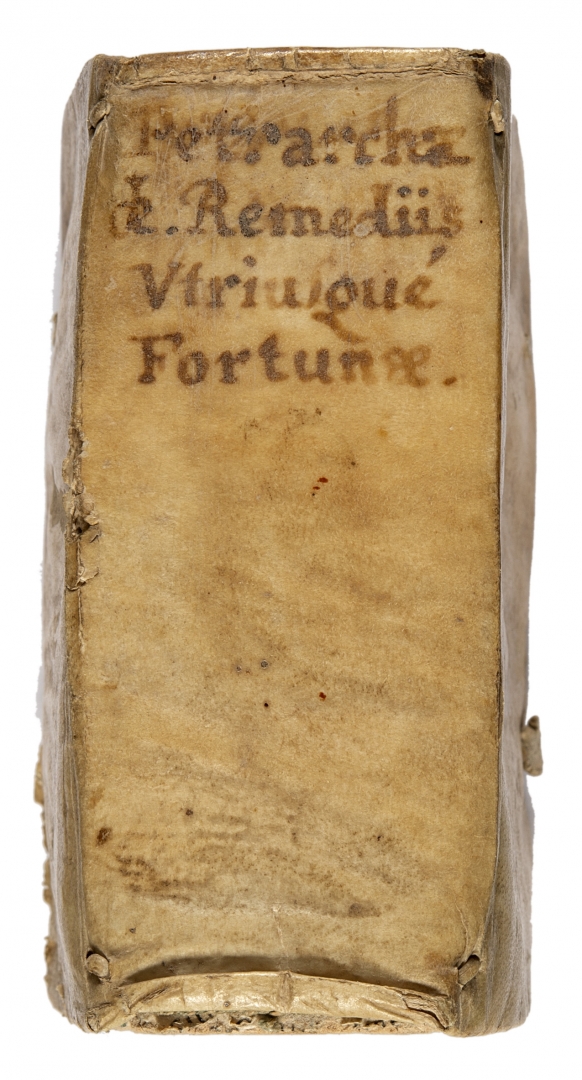 Petrarcha
de. Remediis
Vtriusqué
Fortunæ.